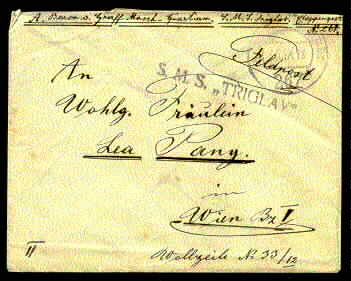 A. Baron v.
S.M.S. Triglav,
No 268
Feldpost
S. M. S. „TRIGLAV"
An
Wohlg. Fräulein
Lea Pany.
in
Wien Bz I
Wollzeile No 33/12
II